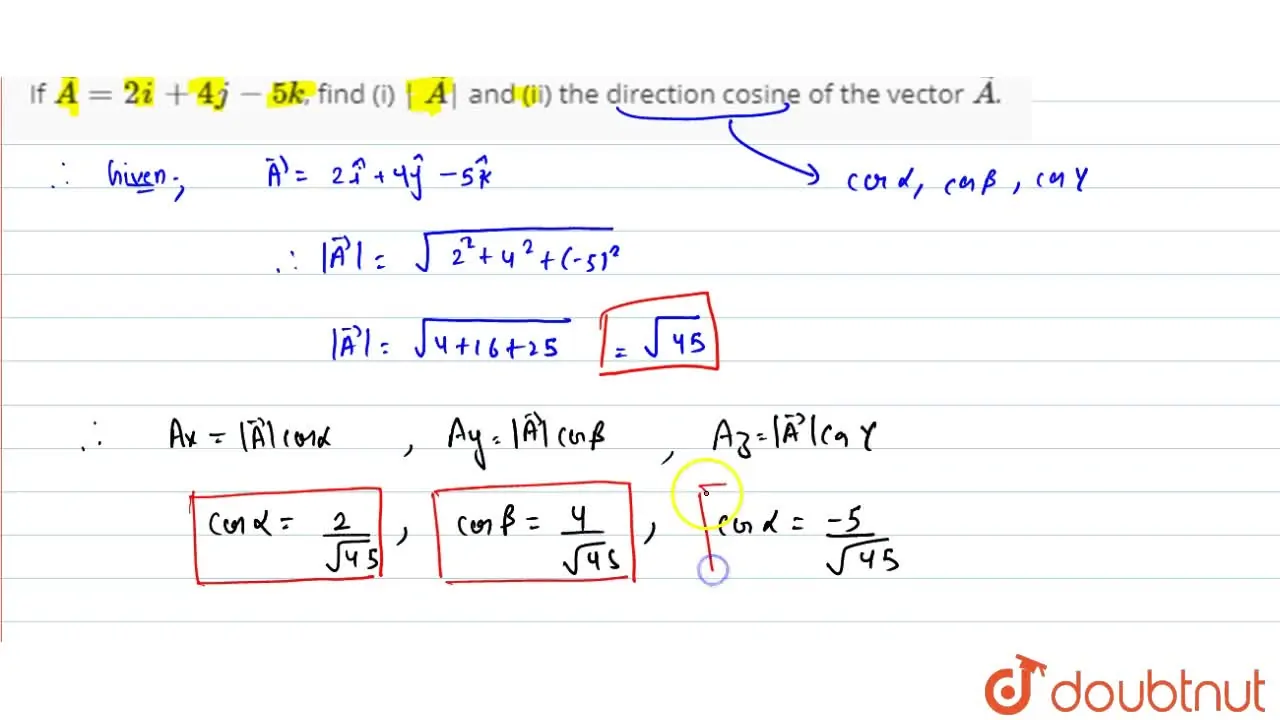 If A⃗ = 2i + 4j − 5k, find (i) | A⃗| and (ii) the direction cosine of the vector A⃗.
∴ Given; A⃗ = 2î + 4ĵ − 5k̂ cos α, cos β, cos γ
∴ |A⃗| = √(2² + 4² + (−5)²)
|A⃗| = √(4+16+25) = √45
∴ Ax = |A⃗| cosα , Ay = |A⃗| cosβ , Az = |A⃗| cos γ
cos α = 2/√45 , cos β = 4/√45 , cos α = −5/√45
doubtnut